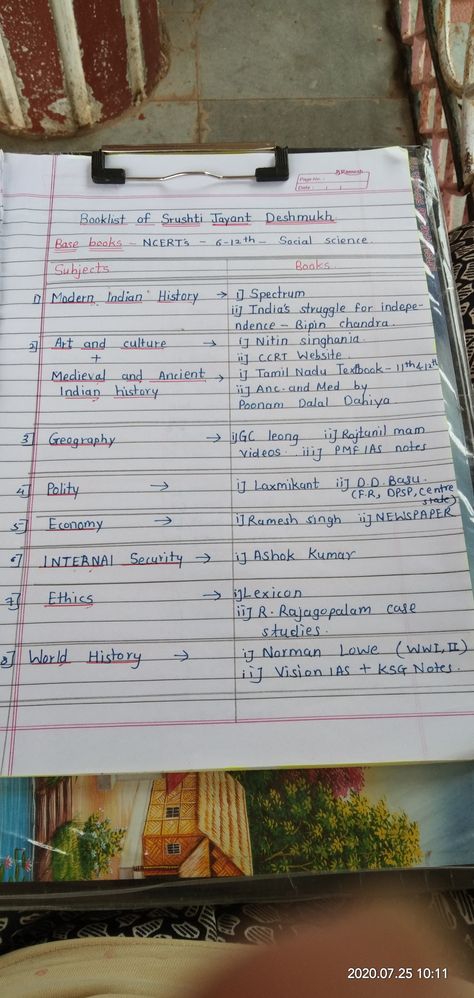 Ramesh
Page No.:
Date: / /
Booklist of Srushti Jayant Deshmukh
Base books - NCERT's - 6-12th - Social science.
Subjects Books
1) Modern Indian History → i] Spectrum
ii] India's struggle for indepe-
ndence - Bipin chandra.
2) Art and culture → i] Nitin singhania.
+ ii] CCRT Website.
Medieval and Ancient → i] Tamil Nadu Textbook - 11th & 12th
Indian history ii] Anc. and Med by
Poonam Dalal Dahiya
3] Geography → i] GC leong ii] Rajtanil mam
videos. iii] PMF IAS notes
4] Polity → i] Laxmikant ii] D.D. Basu.
(F.R, DPSP, Centre
state)
5] Economy → i] Ramesh singh ii] NEWSPAPER
6] INTERNAl Security → i] Ashok Kumar
7] Ethics → i] Lexicon
ii] R. Rajagopalam case
studies.
8] World History → i] Norman Lowe (WWI, II)
ii] Vision IAS + KSG Notes.
2020.07.25 10:11